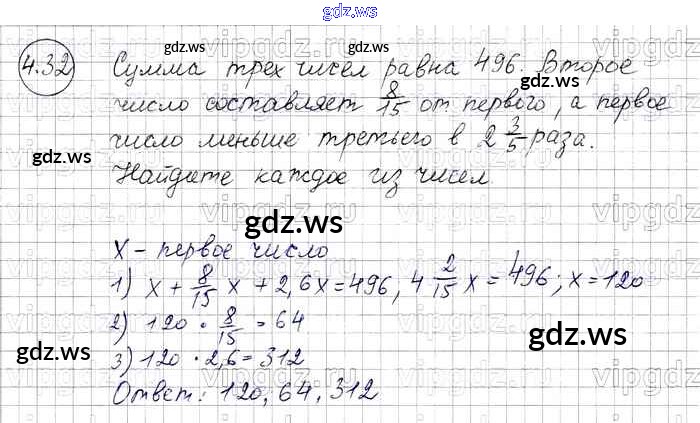 gdz.ws
gdz.ws gdz.ws gdz.ws
4.32 Сумма трех чисел равна 496. Второе
число составляет 8/15 от первого, а первое
число меньше третьего в 2 3/5 раза.
gdz.ws gdz.ws gdz.ws
Найдите каждое из чисел.
gdz.ws
X - первое число
1) x + 8/15 x + 2,6x = 496, 4 2/15 x = 496; x = 120
2) 120 · 8/15 = 64
gdz.ws gdz.ws gdz.ws
3) 120 · 2,6 = 312
Ответ: 120, 64, 312
gdz.ws